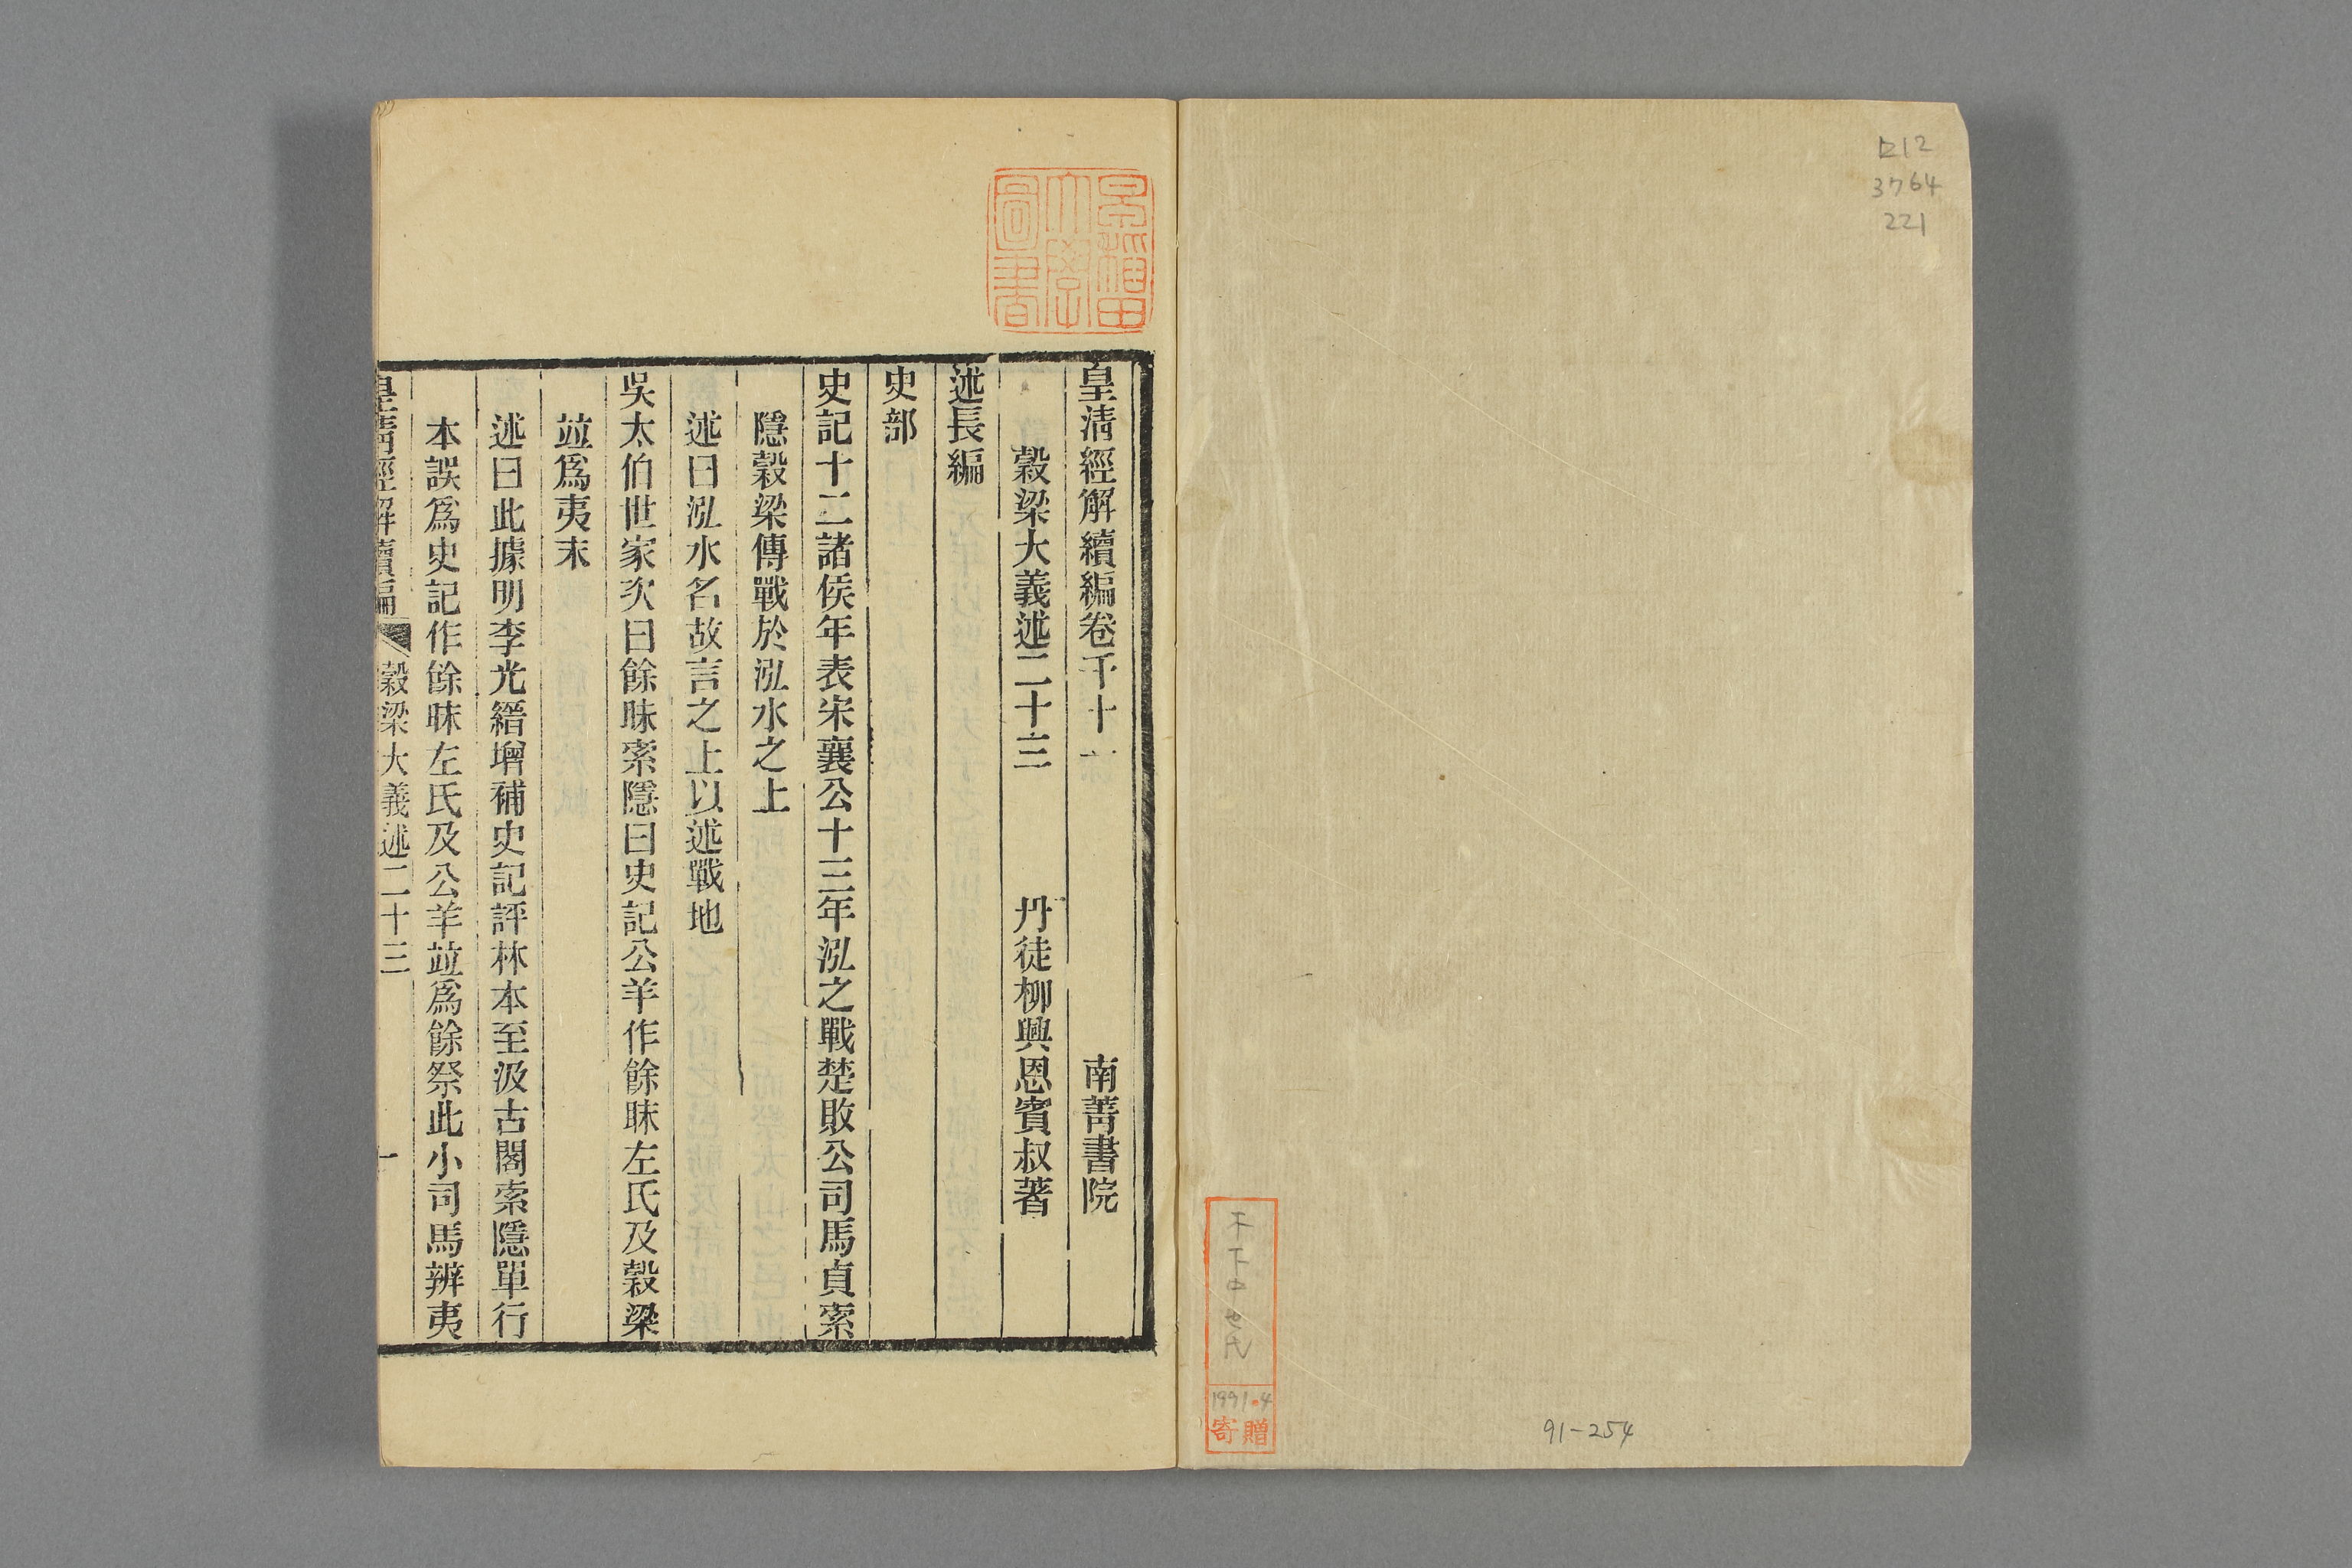 ロ12
3764
221
木下エ七氏
1991.4
寄贈
91-254
早稲田大學圖書
皇清經解續編卷千十一 南菁書院
穀梁大義述二十三 丹徒柳興恩賓叔著
述長編
史部
史記十二諸侯年表宋襄公十三年泓之戰楚敗公司馬貞索
隱穀梁傳戰於泓水之上
述曰泓水名故言之上以述戰地
吳太伯世家次曰餘眛索隱曰史記公羊作餘眛左氏及穀梁
竝爲夷末
述曰此據明李光縉增補史記評林本至汲古閣索隱單行
本誤爲史記作餘眛左氏及公羊竝爲餘祭此小司馬辨夷
皇清經解續編 穀梁大義述二十三 一